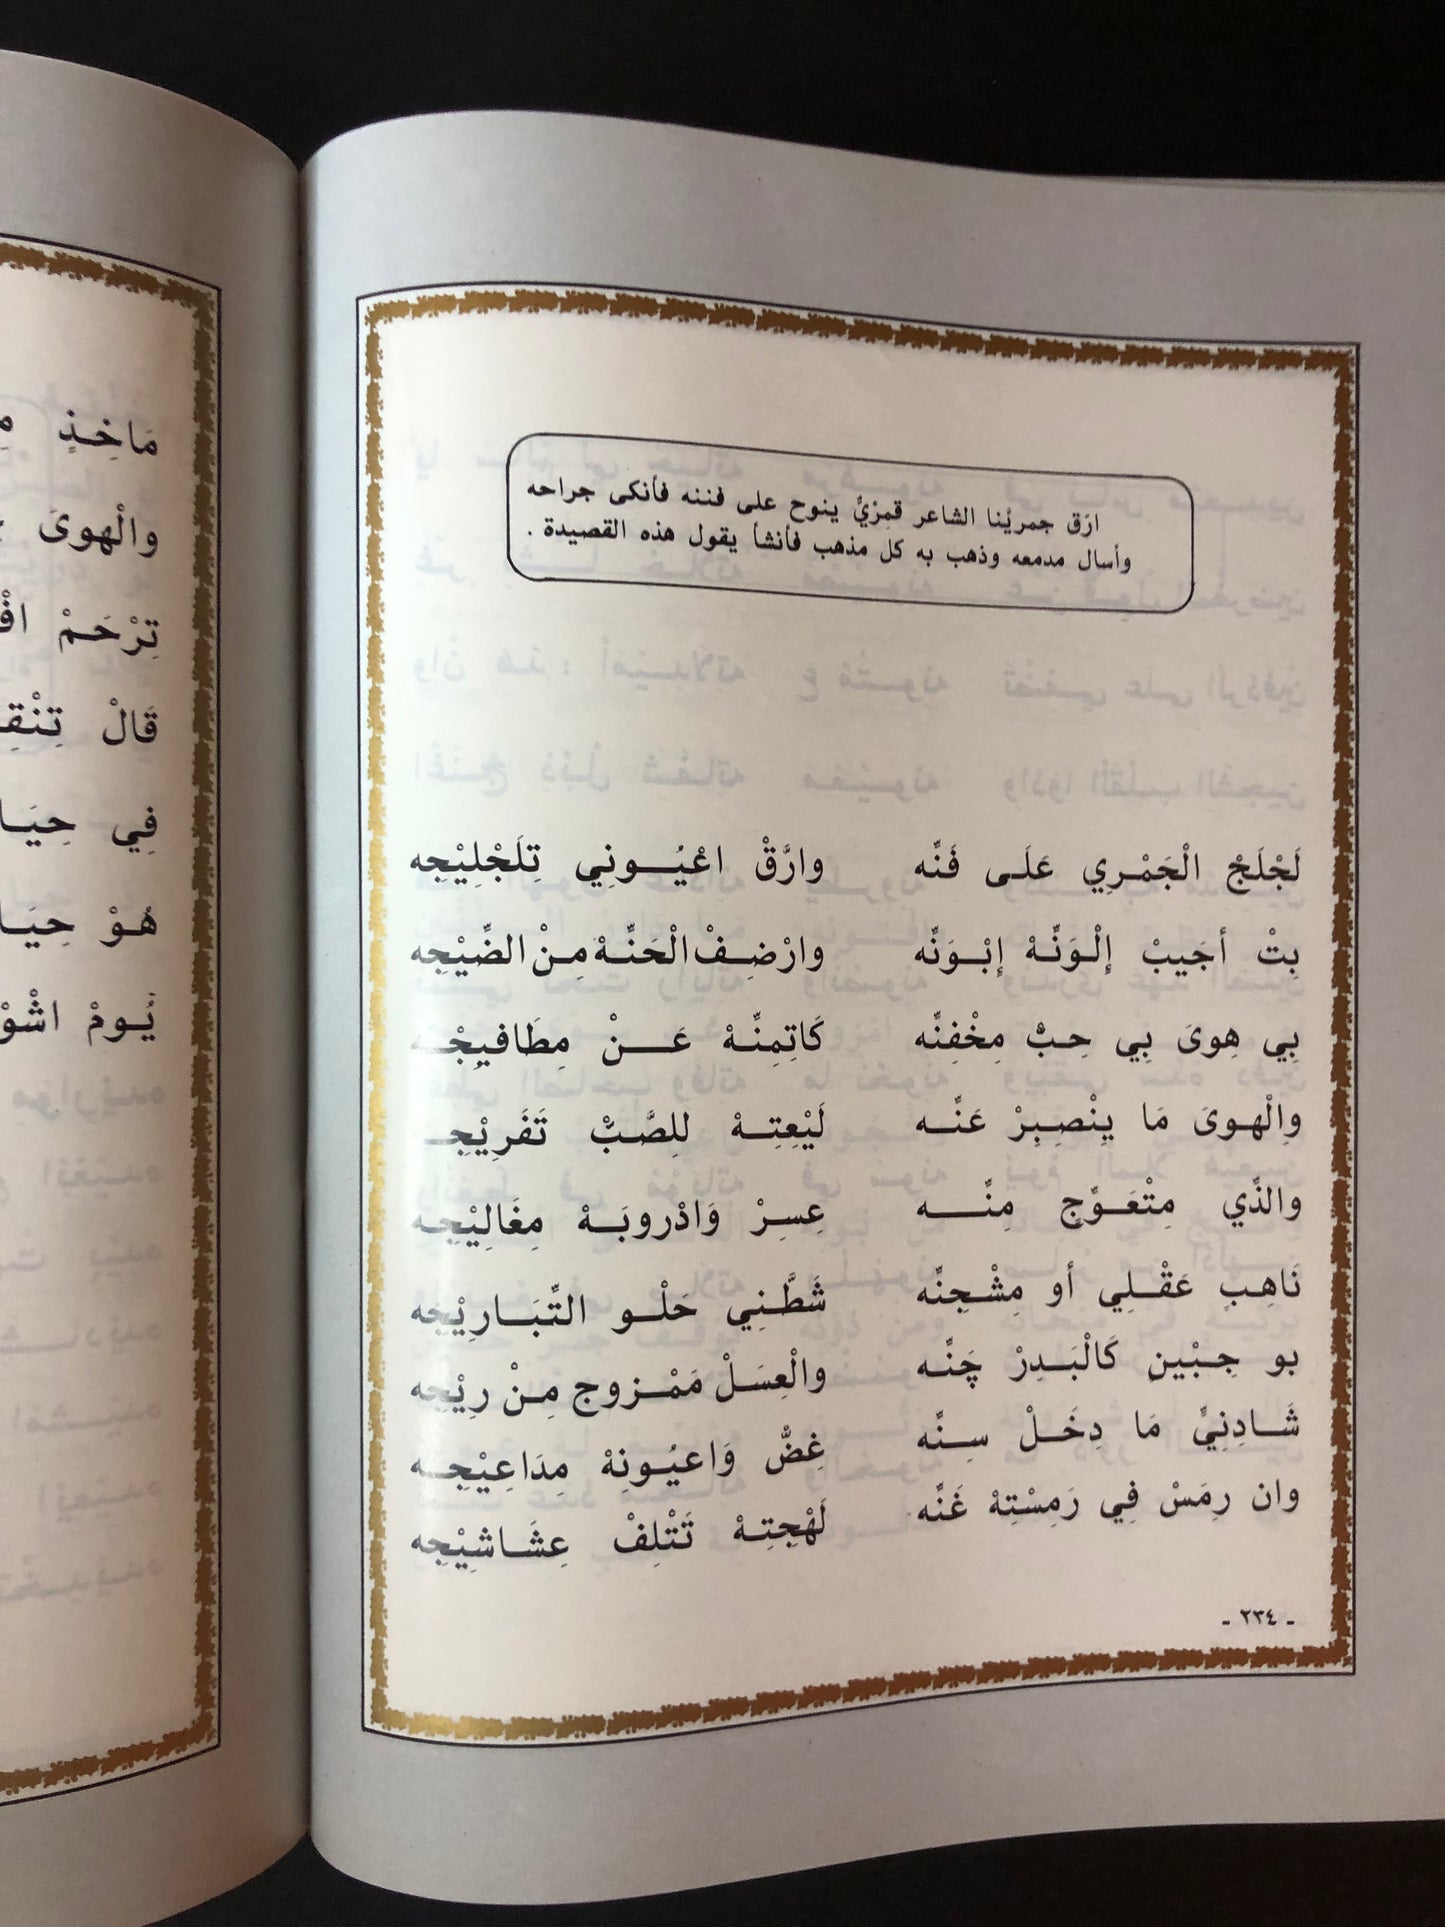 ارَق جمريُنا الشاعر قمِزيٌّ ينوح على فننه فأنكى جراحه
وأسال مدمعه وذهب به كل مذهب فأنشأ يقول هذه القصيدة .
لَجْلَجْ الْجَمْرِي عَلَى فَنِّه وارَّقْ اعْيُونِي تِلَجْلِيْجِه
بِتْ أجَيبْ إلْوَنِّهْ إبْوَنِّه وارْضِفْ الْحَنِّهْ مِنْ الضِّيْجِه
بِي هِوىَ بِي حِبٌّ مِخْفِنِّه كَاتِمِنِّهْ عَنْ مِطَافيِجْه
والْهوىَ مَا يِنْصِبِرْ عَنِّه لَيْعِتِهْ لِلصَّبّْ تَفَرِيْجِه
والذِّي مِتْعَوِّجٍ مِنِّه عِسِرْ وَادْروبَهْ مِغَالِيْجِه
نَاهِبِ عَقْلِي أو مِشْجِنِّه شَطَّنِي حَلْو التِّبَارِيْجَه
بو جِبْينٍ كَالْبَدِرْ چَنِّه والْعِسَلْ مَمْزوج مِنْ رِيْجِه
شَادِنِيٍّ مَا دِخَلْ سِنِّه غِضٌّ وَاعيُونِهْ مِدَاعِيْجِه
وان رِمَسْ فِي رَمِسْتِهْ غَنِّه لَهْجِتِهْ تَتْلِفْ عِشَاشيْجِه
- ٢٣٤ -
مَاخِذٍ
والْهوىَ
تِرْحَمْ
قَالْ
فِي
هُوْ
يُومْ